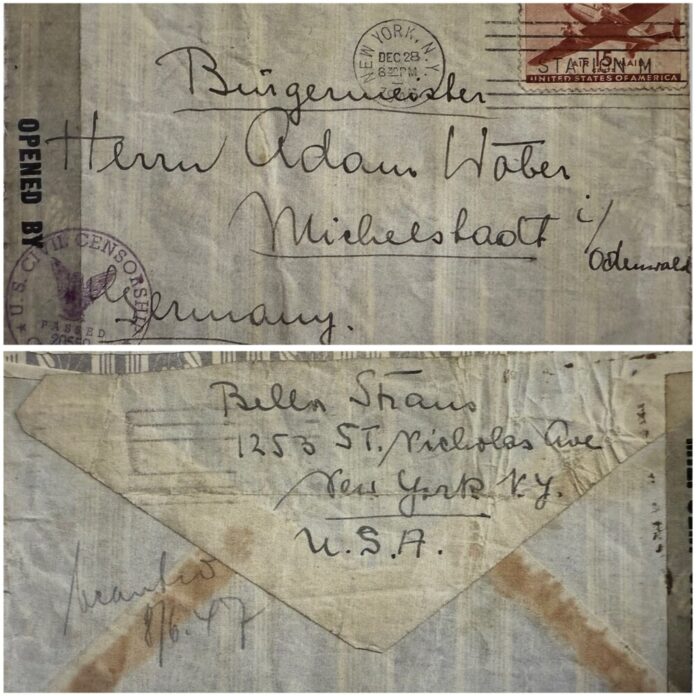 NEW YORK, N.Y.
DEC 28
6 30 PM
AIR 15¢ MAIL
STATION M
UNITED STATES OF AMERICA
Bürgermeister
OPENED BY
Herrn Adam Wöber
Michelstadt i/
Odenwald
U.S. CIVIL CENSORSHIP
PASSED
Germany.
Bella Straus
1253 ST. Nicholas Ave
New York N.Y.
U.S.A.
8/6.47